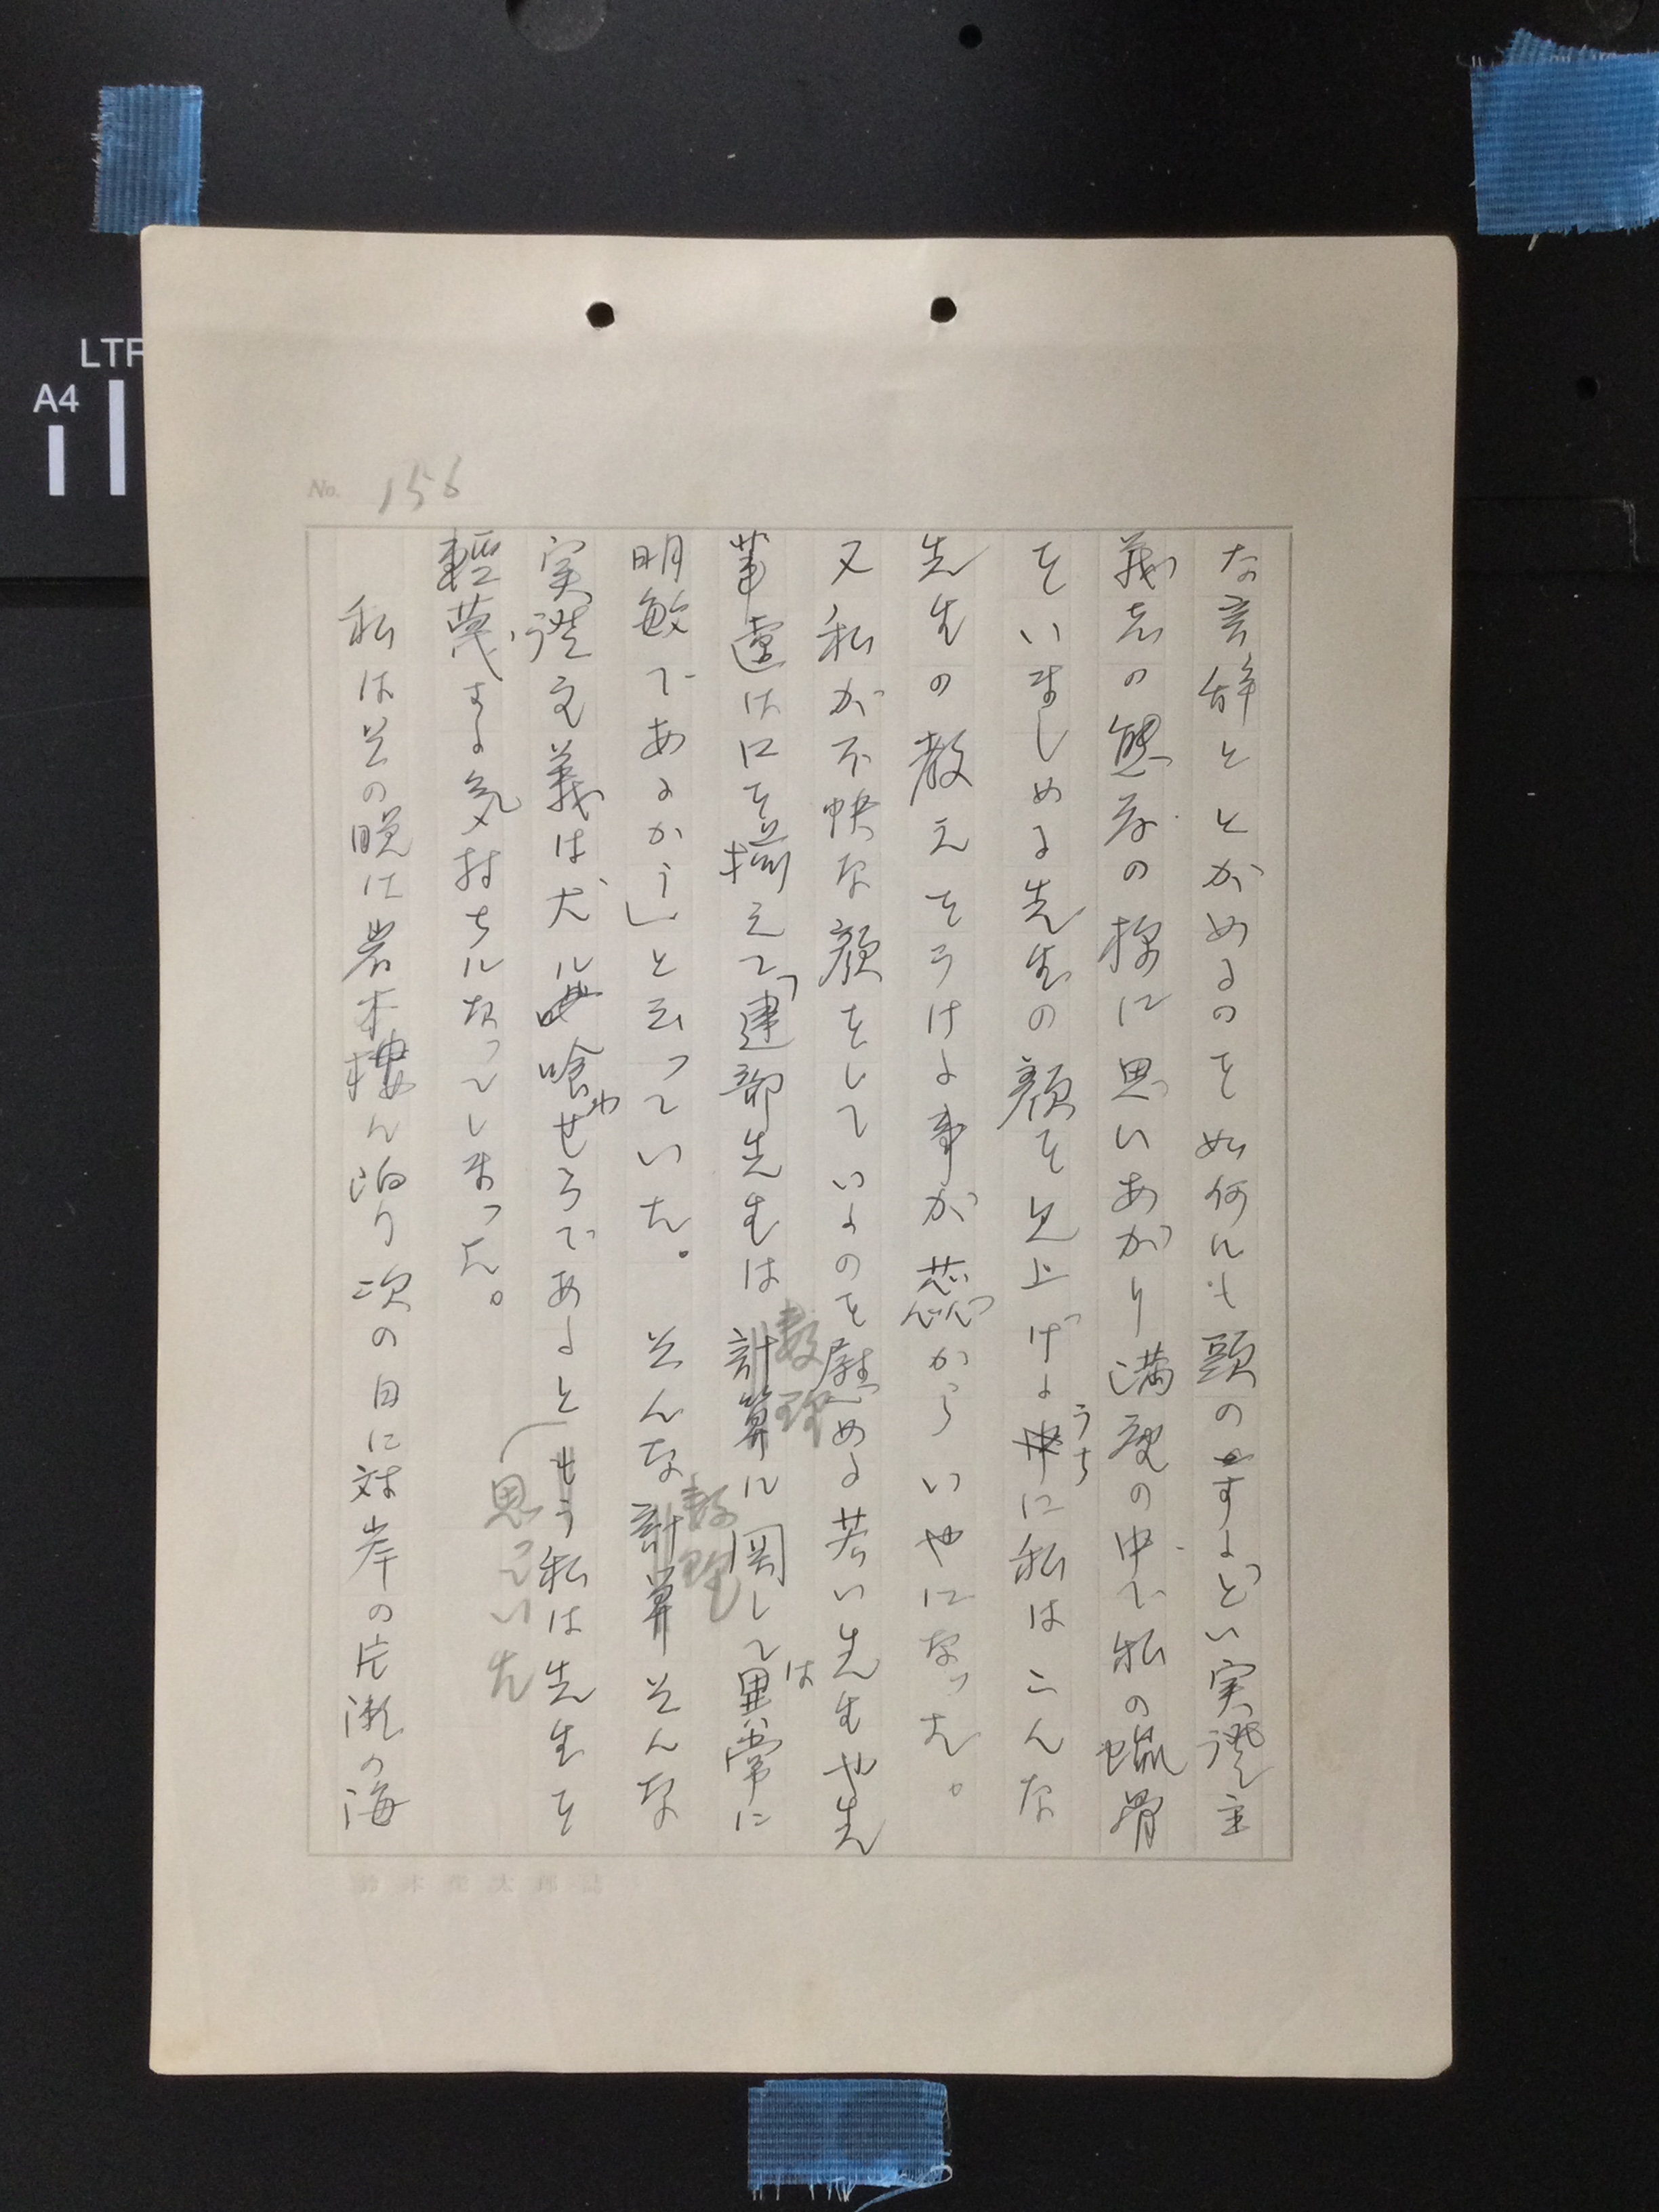 No. 156
な言辞ととがめるのを如何にも頭のするどい実證主
義者の態度の様に思いあがり満座の中で私の蝋骨
をいましめる先生の顔を見上げるうちに私はこんな
先生の教えをうける事が蕊からいやになった。
又私が不快な顔をしているのを慰める若い先生や先
輩達は口を揃えて「建部先生は数理に関しては異常に
明敏であるから」と云っていた。そんな数理そんな
実證主義は犬に喰わせろであると思っていた もう私は先生を
輕蔑する気持ちになってしまった。
私はその晩は岩木樓に泊り次の日に対岸の片瀬の海
鈴木榮太郎誌
LTR
A4